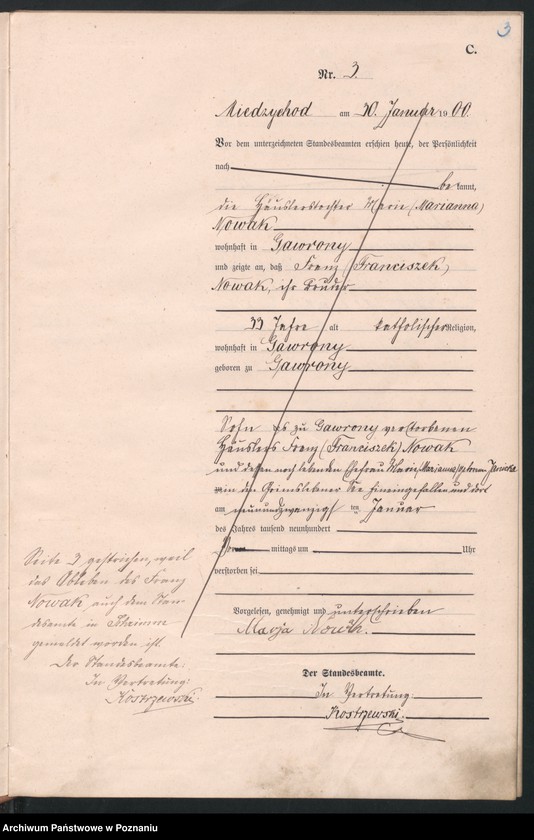 3
C.
Nr. 3.
Miedzychod am 30. Januar 1900.
Vor dem unterzeichneten Standesbeamten erschien heute, der Persönlichkeit
nach
be kannt,
die Häuslerstochter Marie (Marianna)
Nowak
wohnhaft in Gawrony
und zeigte an, daß Franz (Franciszek)
Nowak, ihr Bruder
33 Jahre alt katholischer Religion,
wohnhaft in Gawrony
geboren zu Gawrony
Sohn des zu Gawrony verstorbenen
Häuslers Franz (Franciszek) Nowak
und dessen noch lebenden Ehefrau Marie (Marianna) geborenen
in den See hineingefallen und dort
am neunundzwanzigsten ten Januar
des Jahres tausend neunhundert
Vor mittags um Uhr
verstorben sei
Vorgelesen, genehmigt und unterschrieben
Marja Nowak.
Der Standesbeamte.
In Vertretung:
Kostrzewski.
Seite 3 gestrichen, weil
das Ableben des Franz
Nowak auch dem Stan-
desamte in
gemeldet worden ist.
Der Standesbeamte.
In Vertretung:
Kostrzewski.
Archiwum Państwowe w Poznaniu